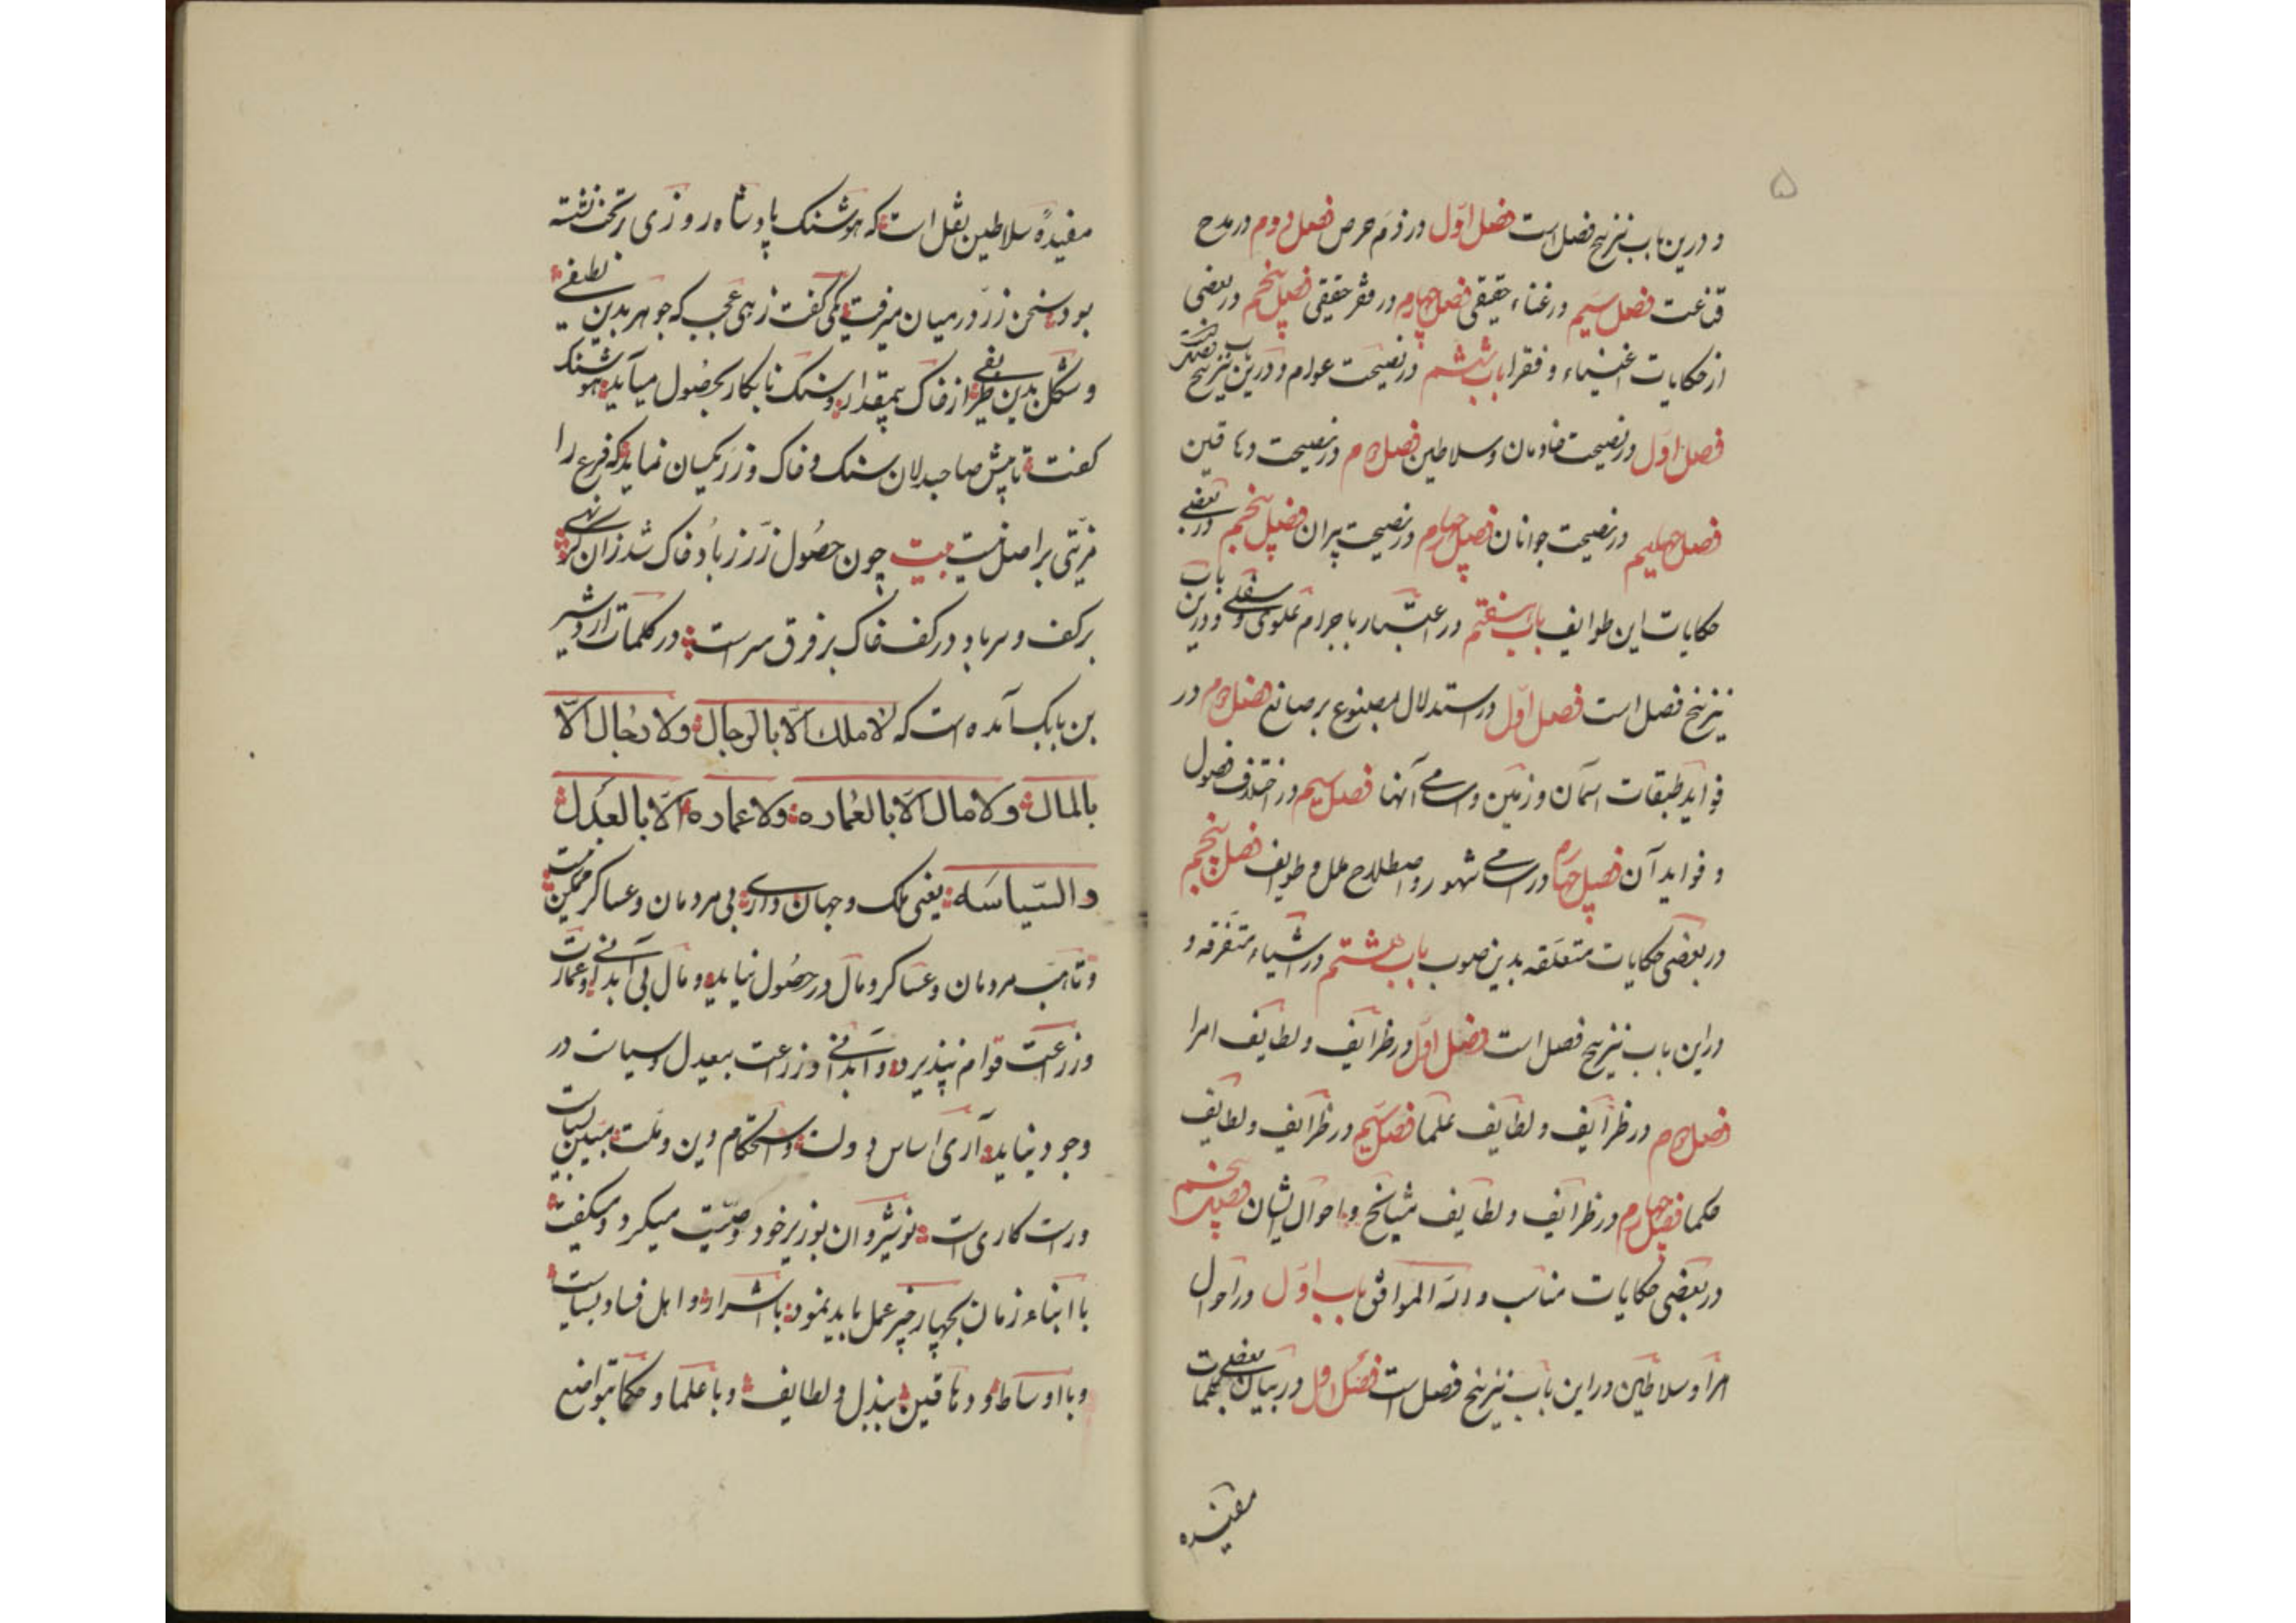 ۵
و درین باب نیز پنج فصل است فصل اوّل در ذمّ حرص فصل دوم در مدح
قناعت فصل سیم در غناء حقیقی فصل چهارم در فقر حقیقی فصل پنجم در بعضی
از حکایات اغنیاء و فقرا باب ششم در نصیحت عوام و درین باب نیز پنج فصلست
فصل اوّل در نصیحت خادمان و سلاطین فصل دوم در نصیحت دهاقین
فصل سیم در نصیحت جوانان فصل چهارم در نصیحت پیران فصل پنجم در بعضی
حکایات این طوایف باب هفتم در اعتبار باجرام علوی و سفلی و درین باب
نیز پنج فصل است فصل اوّل در استدلال مصنوع بر صانع فصل دوم در
فواید طبقات آسمان و زمین و اسامی آنها فصل سیم در اختلاف فصول
و فواید آن فصل چهارم در اسامی شهور و اصطلاح ملل و طوایف فصل پنجم
در بعضی حکایات متعلقه بدین صوب باب هشتم در اشیاء متفرقه و
در این باب نیز پنج فصل است فصل اوّل در ظرایف و لطایف امرا
فصل دوم در ظرایف و لطایف علما فصل سیم در ظرایف و لطایف
حکما فصل چهارم در ظرایف و لطایف مشایخ و احوال ایشان فصل پنجم
در بعضی حکایات مناسب و الله الموافق باب اوّل در احوال
امرا و سلاطین در این باب نیز پنج فصل است فصل اول در بیان بعضی کلمات
مفیده
مفیدهٔ سلاطین نقل است که هوشنک پادشاه روزی بر تخت نشسته
بود سخن زر در میان میرفت یکی گفت زهی عجب که جوهر بدین لطیفی
و شکل بدین ظریفی از خاک بیمقدار و سنک نابکار بحصول میآید هوشنک
گفت تا پیش صاحبدلان سنک و خاک و زر یکسان نماید که فرع را
مزیّتی بر اصل نیست بیت چون حصول زر ز باد خاک شد زان گر نهی
بر کف و سر باد در کف خاک بر فرق سر است در کلمات اردشیر
بن بابک آمده است که لا ملک الّا بالرجال ولا رجال الّا
بالمال ولا مال الّا بالعماره ولا عماره الّا بالعدل
والسّیاسه یعنی ملک و جهان داری بی مردمان و عساکر ممکن نیست
مردمان و عساکر و مال در حصول نیاید و مال بی آبدانی و عمارت
و زراعت قوام نپذیرد و آبدانی و زراعت بیعدل و سیاست در
وجود نیاید آری اساس دولت و استحکام دین و ملت
و راست کاری است نوشیروان بوزیر خود وصیّت میکرد و میگفت
با ابناء زمان بچهار چیز عمل باید نمود با اشرار و اهل فساد بسیاست
و با اوساط و دهاقین ببذل و لطایف و با علما و حکما بتواضع